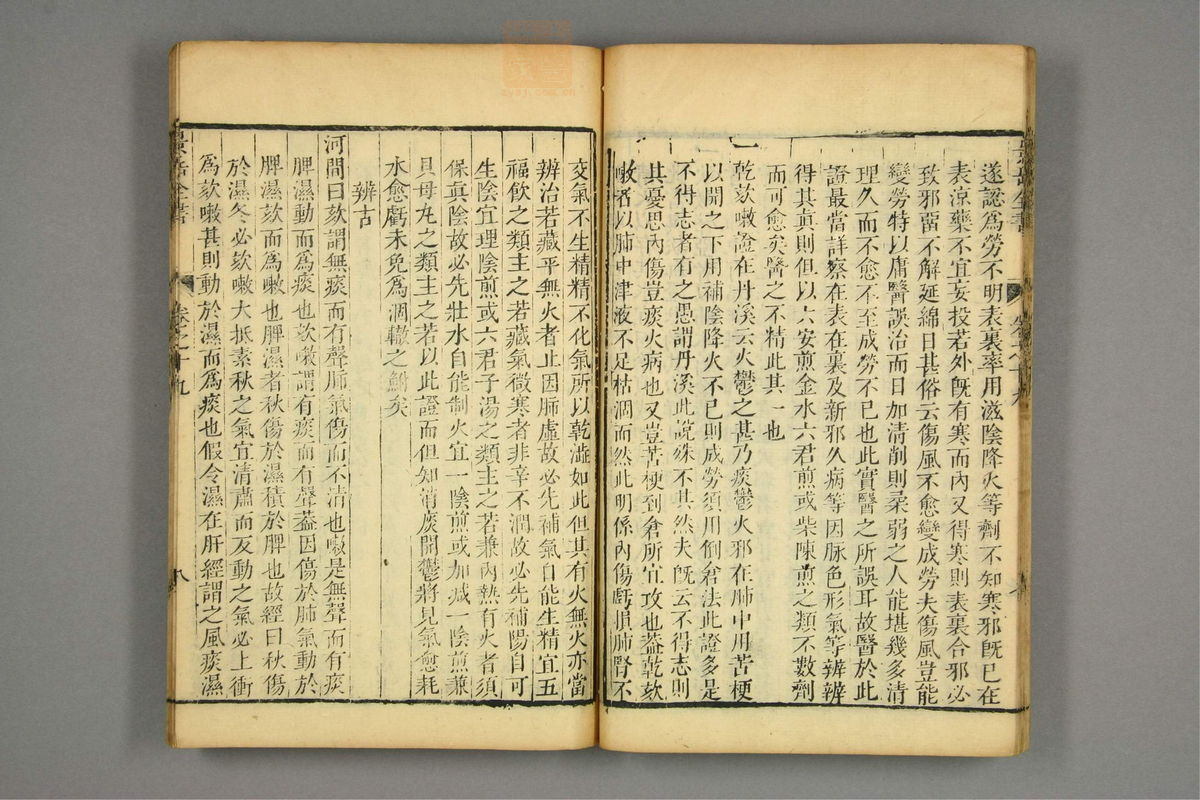 遂認爲勞不明表裏率用滋陰降火等劑不知寒邪既已在
表凉藥不宜妄投若外既有寒而內又得寒則表裏合邪必
致邪畱不解延綿日甚俗云傷風不愈變成勞夫傷風豈能
變勞特以庸醫誤治而日加清削則柔弱之人能堪幾多清
理久而不愈不至成勞不已也此實醫之所誤耳故醫於此
證最當詳察在表在裏及新邪久病等因脉色形氣等辨辨
得其眞則但以六安煎金水六君煎或柴陳煎之類不數劑
而可愈矣醫之不精此其一也
一
乾欬嗽證在丹溪云火鬱之甚乃痰鬱火邪在肺中用苦梗
以開之下用補陰降火不已則成勞須用倒倉法此證多是
不得志者有之愚謂丹溪此說殊不其然夫既云不得志則
其憂思內傷豈痰火病也又豈苦梗到倉所宜攻也葢乾欬
嗽者以肺中津液不足枯涸而然此明係內傷虧損肺腎不
交氣不生精精不化氣所以乾澁如此但其有火無火亦當
辨治若藏平無火者止因肺虛故必先補氣自能生精宜五
福飲之類主之若藏氣微寒者非辛不潤故必先補陽自可
生陰宜理陰煎或六君子湯之類主之若兼內熱有火者須
保眞陰故必先壯水自能制火宜一陰煎或加減一陰煎兼
貝母丸之類主之若以此證而但知消痰開鬱將見氣愈耗
水愈虧未免爲涸轍之鮒矣
辨古
河間曰欬謂無痰而有聲肺氣傷而不清也嗽是無聲而有痰
脾濕動而爲痰也欬嗽謂有痰而有聲葢因傷於肺氣動於
脾濕欬而爲嗽也脾濕者秋傷於濕積於脾也故經曰秋傷
於濕冬必欬嗽大抵素秋之氣宜清肅而反動之氣必上衝
爲欬嗽甚則動於濕而爲痰也假令濕在肝經謂之風痰濕
景岳全書
卷之十九
八